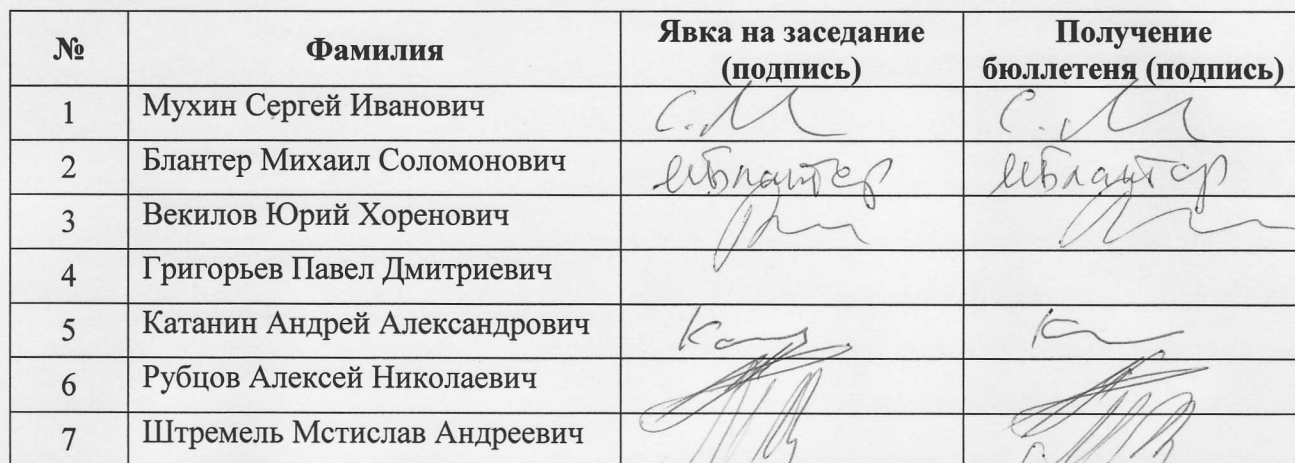 № Фамилия Явка на заседание (подпись) Получение бюллетеня (подпись)
1 Мухин Сергей Иванович С.М С.М
2 Блантер Михаил Соломонович МБлантер МБлантер
3 Векилов Юрий Хоренович
4 Григорьев Павел Дмитриевич
5 Катанин Андрей Александрович
6 Рубцов Алексей Николаевич
7 Штремель Мстислав Андреевич